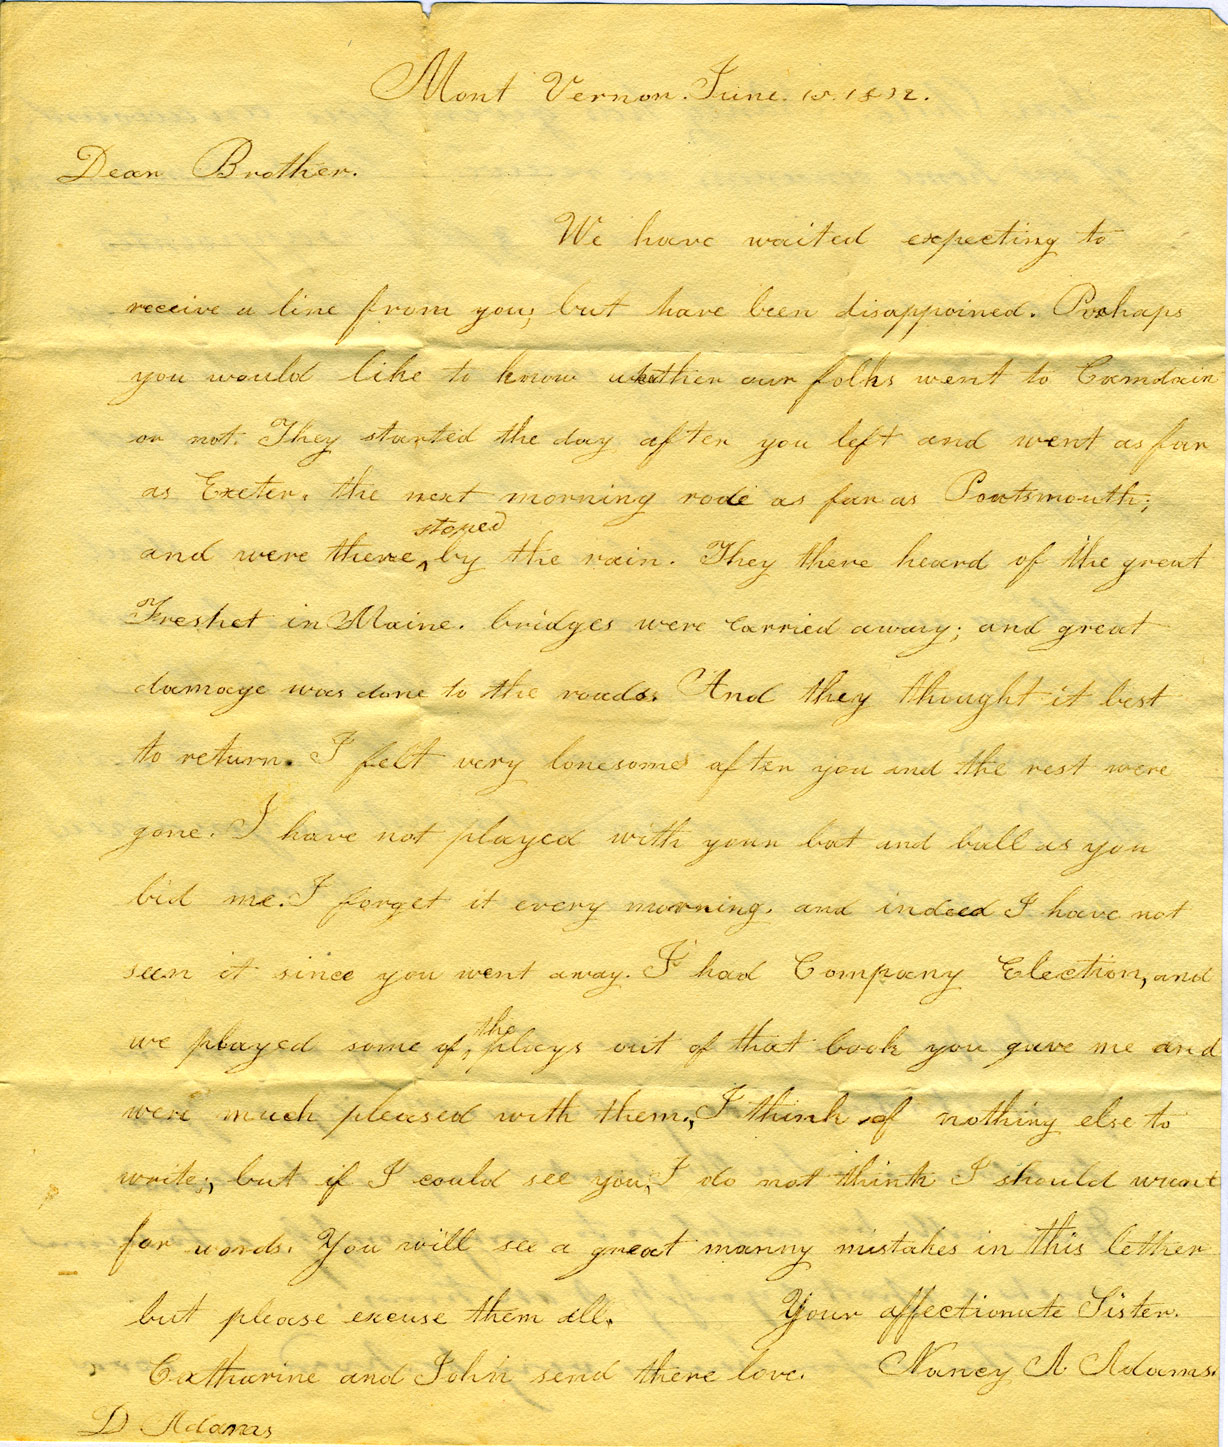 Mont Vernon. June. 15. 1832.
Dear Brother.
We have waited expecting to
receive a line from you; but have been disappoined. Perhaps
you would like to know whether our folks went to Camdain
or not. They started the day after you left and went as far
as Exeter. the next morning rode as far as Poartsmouth;
and were there stoped by the rain. They there heard of the great
Freshet in Maine. bridges were carried away; and great
damage was done to the roads. And they thought it best
to return. I felt very lonesome after you and the rest were
gone. I have not played with your bat and ball as you
bid me. I forget it every morning. and indeed I have not
seen it since you went away. I had Company Election, and
we played some of the plays out of that book you gave me and
were much pleased with them., I think of nothing else to
write;, but if I could see you, I do not think I should want
for words. You will see a great manny mistakes in this letter
but please excuse them all. Your affectionate Sister.
Catharine and John send there love. Nancy A Adams.
D Adams